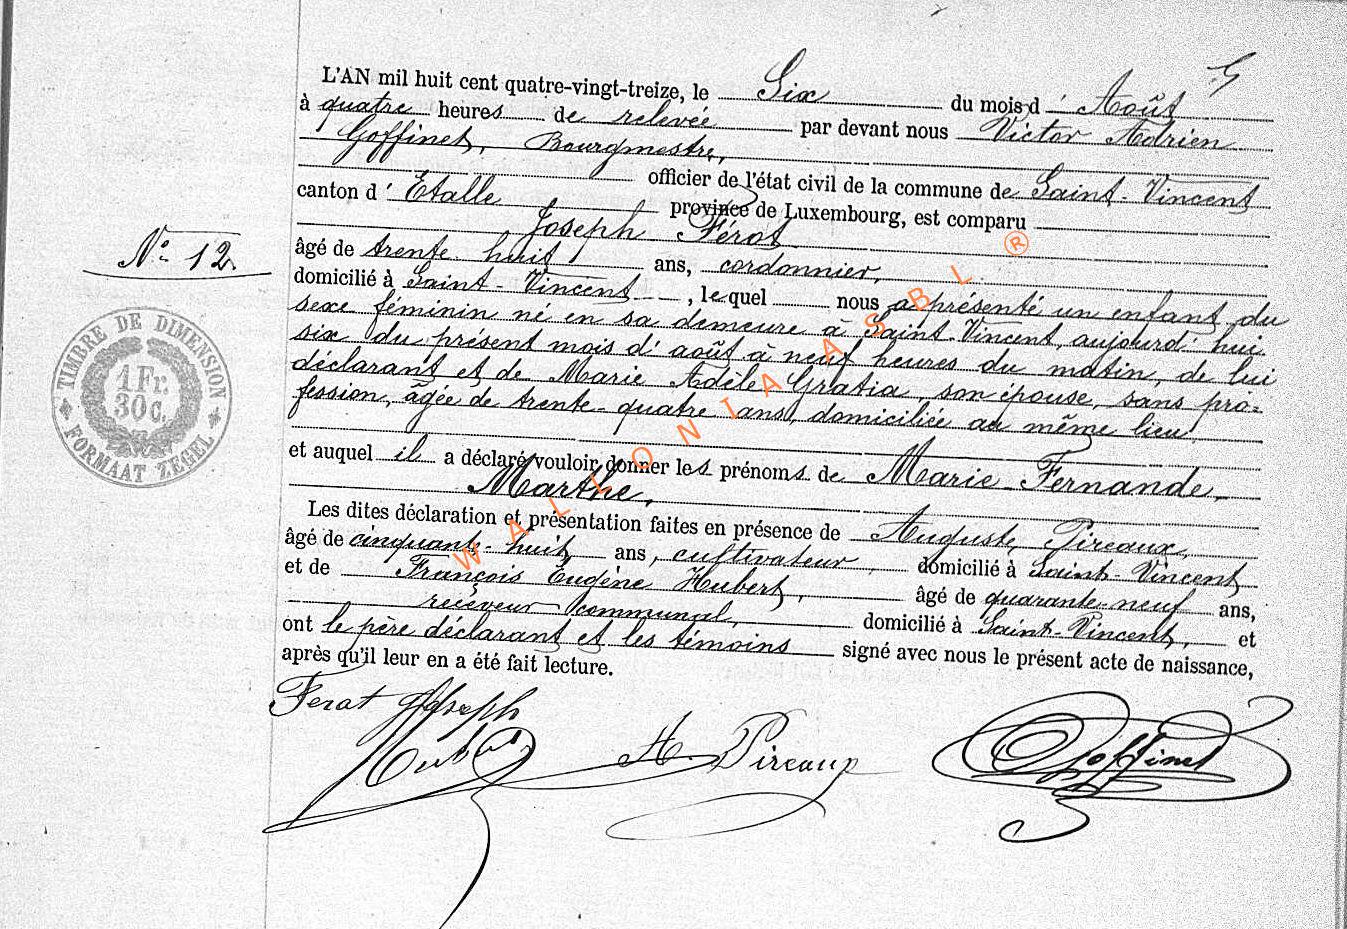 L'AN mil huit cent quatre-vingt-treize, le Six du mois d'Août
à quatre heures de relevée par devant nous Victor Adrien
Goffinet, Bourgmestre,
officier de l'état civil de la commune de Saint-Vincent
canton d'Etalle province de Luxembourg, est comparu
Joseph Férot
âgé de trente huit ans, cordonnier,
domicilié à Saint-Vincent, lequel nous a présenté un enfant du
sexe féminin né en sa demeure à Saint-Vincent, aujourd'hui
six du présent mois d'août à neuf heures du matin, de lui
déclarant et de Marie Adèle Gratia, son épouse, sans pro=
fession, âgée de trente-quatre ans, domiciliée au même lieu
et auquel il a déclaré vouloir donner les prénoms de Marie Fernande
Marthe.
Les dites déclaration et présentation faites en présence de Auguste Pireaux,
âgé de cinquante-huit ans, cultivateur, domicilié à Saint-Vincent
et de François Eugène Hubert, âgé de quarante-neuf ans,
receveur communal, domicilié à Saint-Vincent, et
ont le père déclarant et les témoins signé avec nous le présent acte de naissance,
après qu'il leur en a été fait lecture.
N° 12.
TIMBRE DE DIMENSION
1 Fr.
30 C.
FORMAAT ZEGEL
Ferat Joseph
Hubert
A. Pireaux
Goffinet
WALLONIA ASBL ®